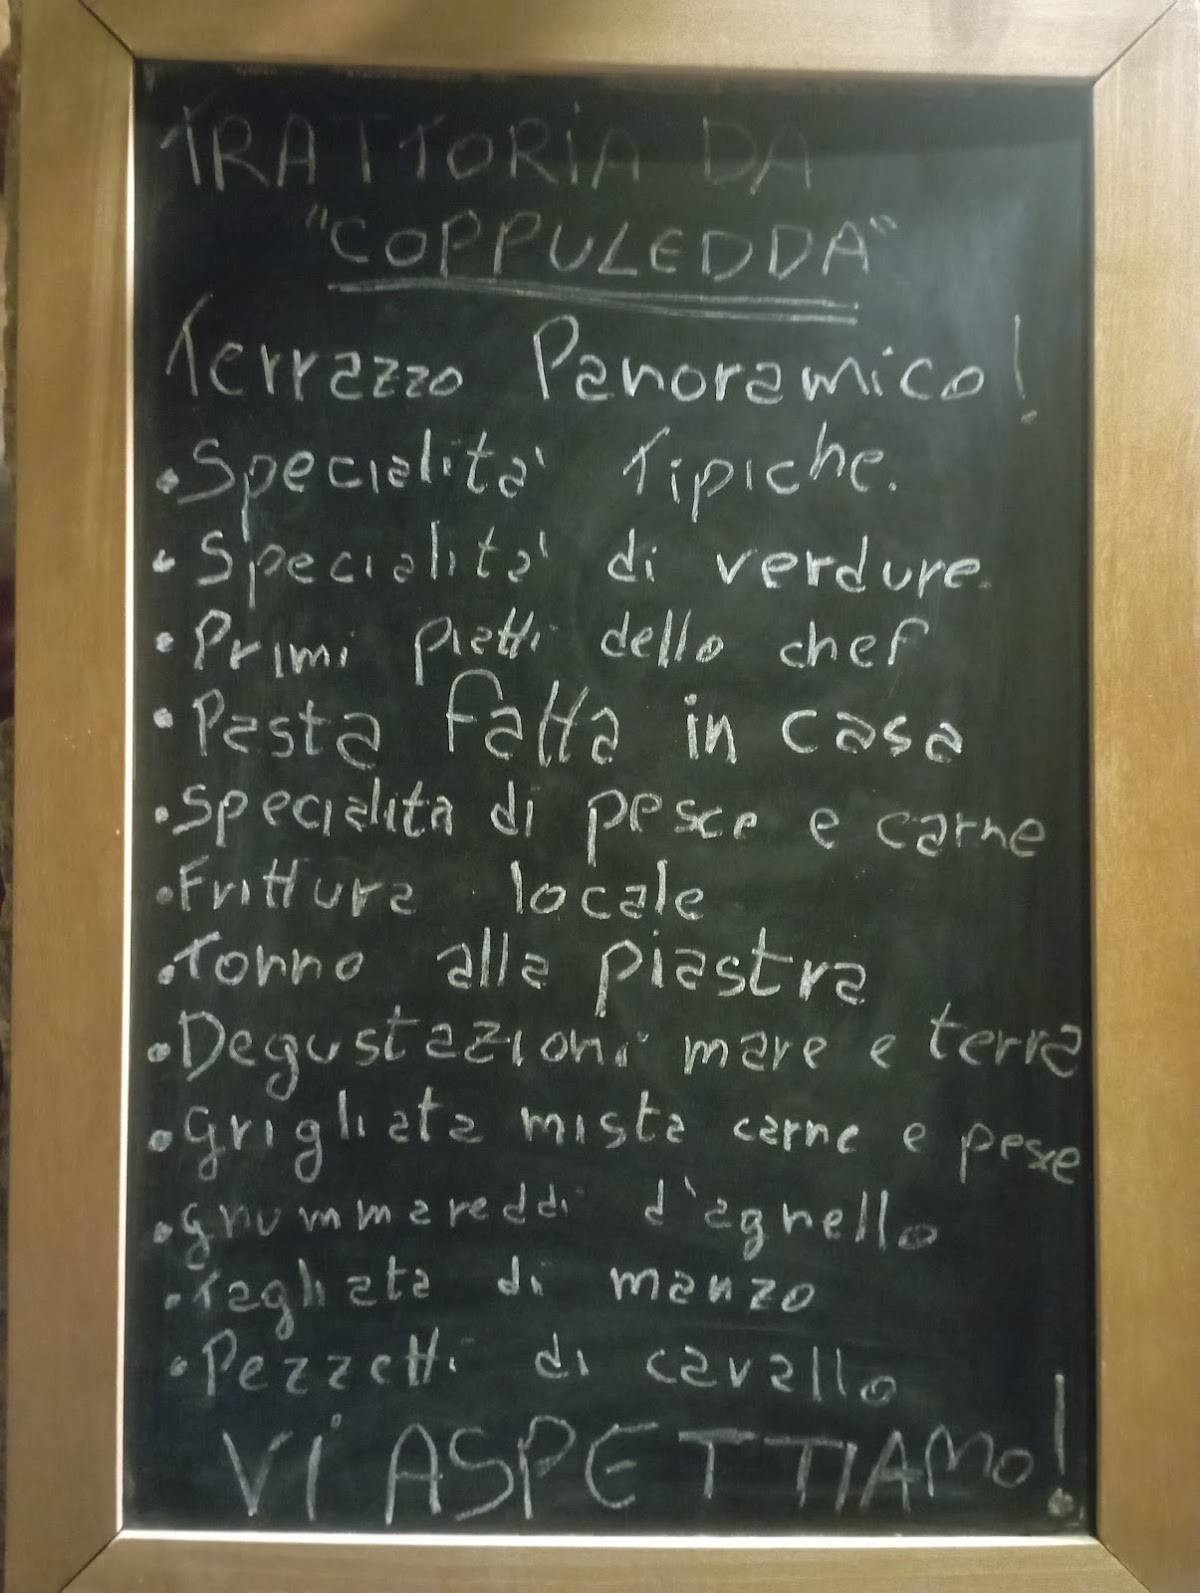 TRATTORIA DA
"COPPULEDDA"
Terrazzo Panoramico!
• Specialita' Tipiche.
• Specialita' di verdure.
• Primi piatti dello chef
• Pasta fatta in casa
• Specialita di pesce e carne
• Frittura locale
• Tonno alla piastra
• Degustazioni mare e terra
• Grigliata mista carne e pesce
• gnummareddi d'agnello
• Tagliata di manzo
• Pezzetti di cavallo
VI ASPETTIAMO!